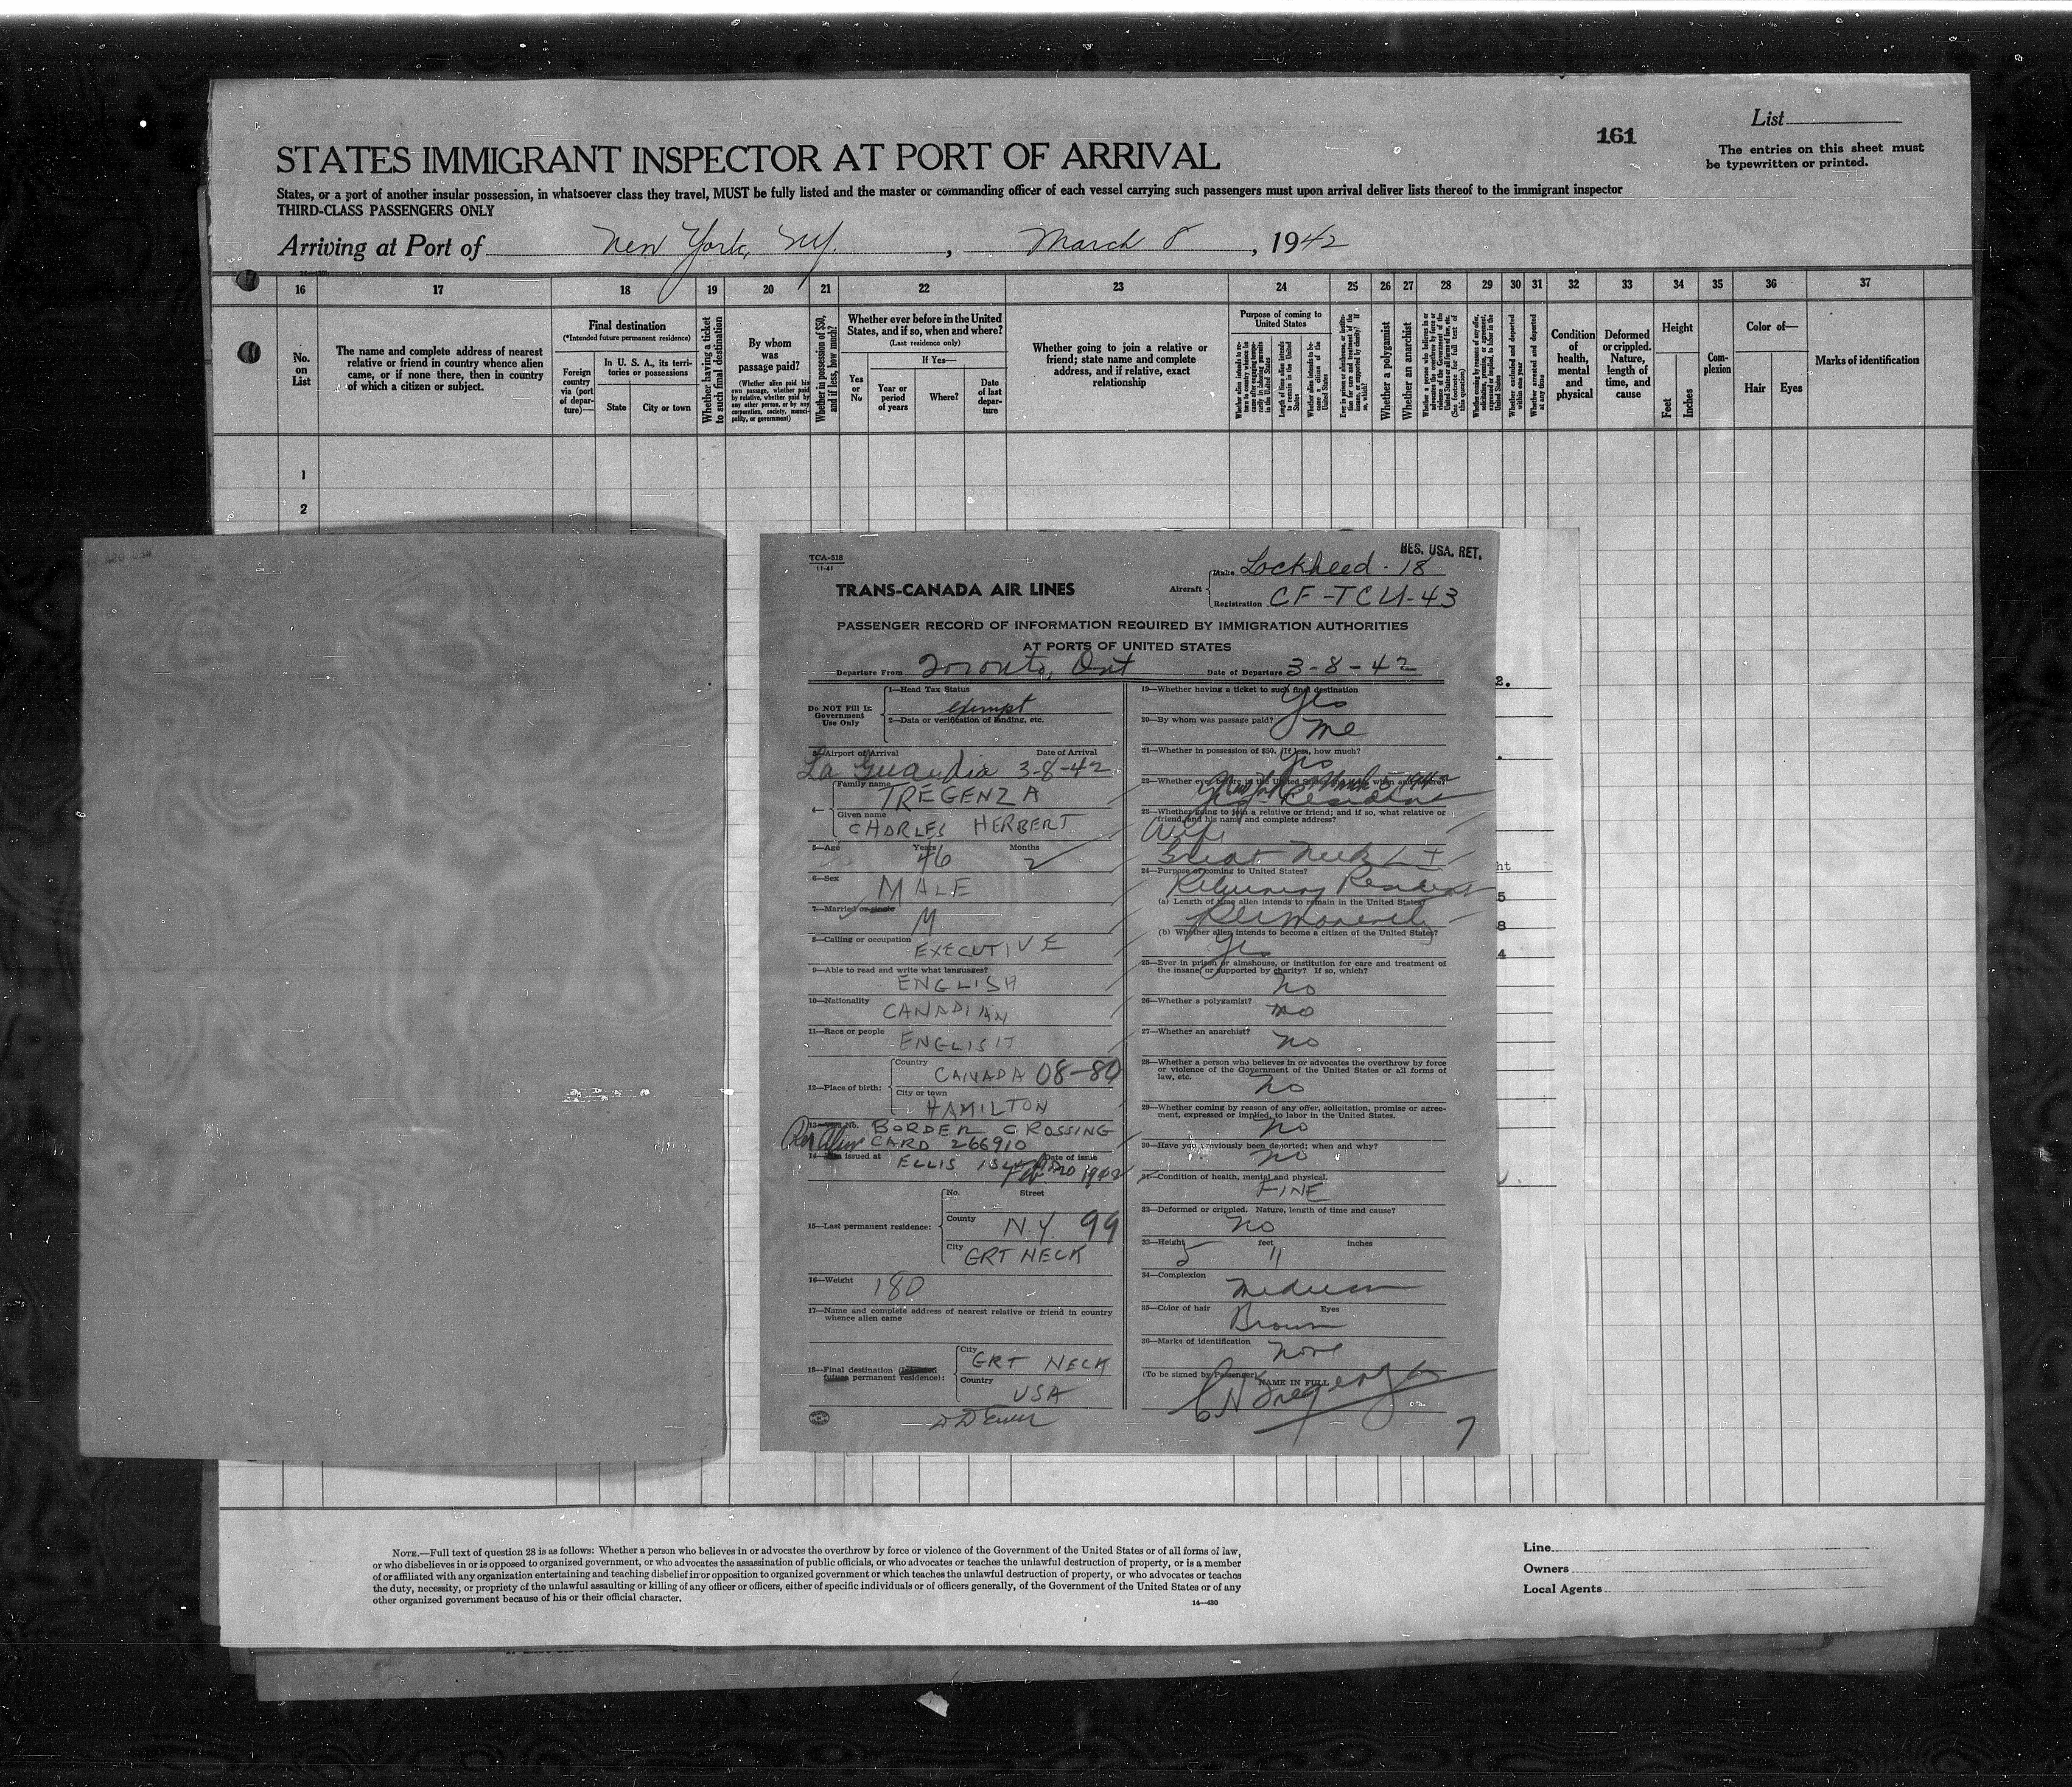 List
161
The entries on this sheet must
be typewritten or printed.
STATES IMMIGRANT INSPECTOR AT PORT OF ARRIVAL
States, or a port of another insular possession, in whatsoever class they travel, MUST be fully listed and the master or commanding officer of each vessel carrying such passengers must upon arrival deliver lists thereof to the immigrant inspector
THIRD-CLASS PASSENGERS ONLY
Arriving at Port of New York, NY. , March 8 , 1942
16 17 18 19 20 21 22 23 24 25 26 27 28 29 30 31 32 33 34 35 36 37
No. on List
The name and complete address of nearest relative or friend in country whence alien came, or if none there, then in country of which a citizen or subject.
Final destination
(*Intended future permanent residence)
Foreign country via (port of departure)—
In U. S. A., its territories or possessions
State
City or town
Whether having a ticket to such final destination
By whom was passage paid?
(Whether alien paid his own passage, whether paid by relative, whether paid by any other person, or by any corporation, society, municipality, or government)
Whether in possession of $50, and if less, how much?
Whether ever before in the United States, and if so, when and where?
(Last residence only)
Yes or No
If Yes—
Year or period of years
Where?
Date of last departure
Whether going to join a relative or friend; state name and complete address, and if relative, exact relationship
Purpose of coming to United States
Whether a polygamist
Whether an anarchist
Condition of health, mental and physical
Deformed or crippled. Nature, length of time, and cause
Height
Feet
Inches
Complexion
Color of—
Hair
Eyes
Marks of identification
1
2
TCA-518
11-41
RES. USA. RET.
TRANS-CANADA AIR LINES
Aircraft
Make Lockheed - 18
Registration CF-TCU-43
PASSENGER RECORD OF INFORMATION REQUIRED BY IMMIGRATION AUTHORITIES
AT PORTS OF UNITED STATES
Departure From Toronto, Ont Date of Departure 3-8-42
Do NOT Fill In
Government
Use Only
1—Head Tax Status
exempt
2—Data or verification of landing, etc.
3—Airport of Arrival Date of Arrival
La Guardia 3-8-42
4—
Family name
TREGENZA
Given name
CHARLES HERBERT
5—Age Years Months
46 2
6—Sex
MALE
7—Married or single
M
8—Calling or occupation
EXECUTIVE
9—Able to read and write what languages?
ENGLISH
10—Nationality
CANADIAN
11—Race or people
ENGLISH
12—Place of birth:
Country
CANADA 08-80
City or town
HAMILTON
No. BORDER CROSSING
CARD 266910
14— issued at Date of issue
ELLIS ISLAND Feb 20 1942
15—Last permanent residence:
No. Street
County
N.Y. 99
City
GRT NECK
16—Weight
180
17—Name and complete address of nearest relative or friend in country
whence alien came
18—Final destination (Intended
future permanent residence):
City
GRT NECK
Country
USA
19—Whether having a ticket to such final destination
Yes
20—By whom was passage paid?
Me
21—Whether in possession of $50. If less, how much?
Yes
22—Whether ever before in the United States; when and where?
Yes - Resident
23—Whether going to join a relative or friend; and if so, what relative or
friend, and his name and complete address?
Wife
Great Neck L I
24—Purpose of coming to United States?
Returning Resident
(a) Length of time alien intends to remain in the United States?
Permanently
(b) Whether alien intends to become a citizen of the United States?
Yes
25—Ever in prison or almshouse, or institution for care and treatment of
the insane, or supported by charity? If so, which?
No
26—Whether a polygamist?
no
27—Whether an anarchist?
No
28—Whether a person who believes in or advocates the overthrow by force
or violence of the Government of the United States or all forms of
law, etc.
No
29—Whether coming by reason of any offer, solicitation, promise or agree-
ment, expressed or implied, to labor in the United States.
No
30—Have you previously been deported; when and why?
No
31—Condition of health, mental and physical.
FINE
32—Deformed or crippled. Nature, length of time and cause?
No
33—Height feet inches
5 11
34—Complexion
Medium
35—Color of hair Eyes
Brown
36—Marks of identification
None
(To be signed by Passenger)
NAME IN FULL
C H Tregenza
7
NOTE.—Full text of question 28 is as follows: Whether a person who believes in or advocates the overthrow by force or violence of the Government of the United States or of all forms of law,
or who disbelieves in or is opposed to organized government, or who advocates the assassination of public officials, or who advocates or teaches the unlawful destruction of property, or is a member
of or affiliated with any organization entertaining and teaching disbelief in or opposition to organized government or which teaches the unlawful destruction of property, or who advocates or teaches
the duty, necessity, or propriety of the unlawful assaulting or killing of any officer or officers, either of specific individuals or of officers generally, of the Government of the United States or of any
other organized government because of his or their official character.
14—430
Line
Owners
Local Agents